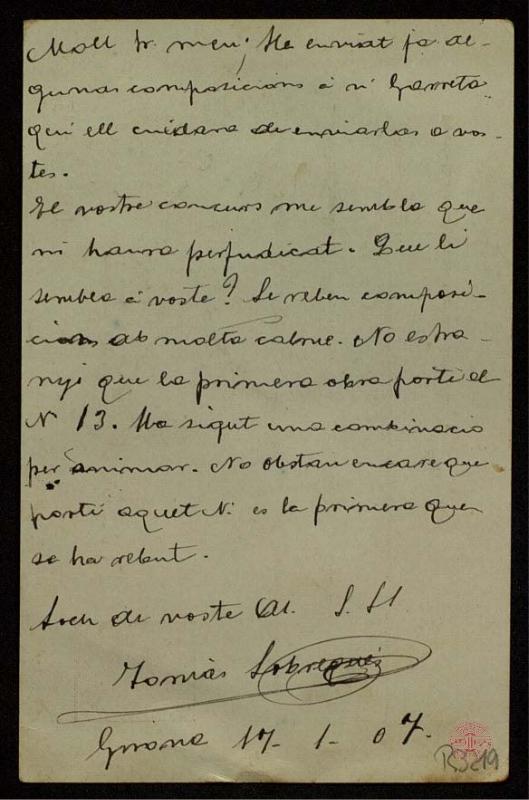 Molt Sr. meu; He enviat ja al-
gunas composicions á n' Garreta
qui ell cuidara de enviarlas a vos-
tes.
El vostre concurs me sembla que
ni haura perjudicat. Que li
sembla á voste? Se reben composi-
cions ab molta calma. No estra-
nyi que la primera obra porti el
Nº 13. Ha sigut una combinacio
per animar. No obstan encare que
porti aquet N. es la primera que
se ha rebut.
Soch de voste At. S. S.
Tomás Sobrequés
Girona 17- 1- 07.
R.3219